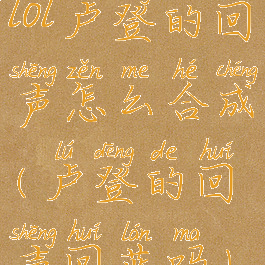 lol卢登的回
shēng zěn me hé chéng
声怎么合成
lú dēng de huí
(卢登的回
shēng huí lán mo
声回蓝吗)